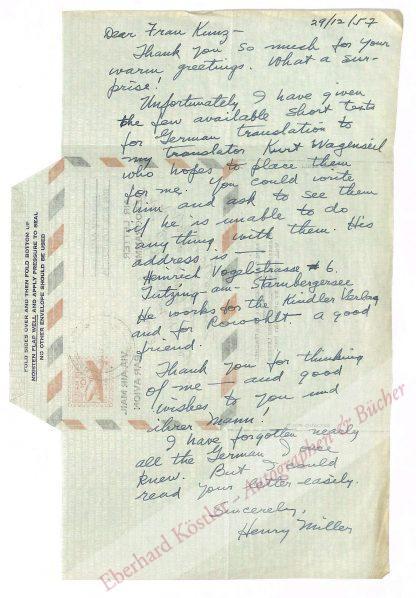 29/12/57
Dear Frau Kunz-
Thank you so much for your
warm greetings. What a sur-
prise!
Unfortunately I have given
the few available short texts
for German translation to
my translator Kurt Wagenseil
who hopes to place them
for me. You could write
him and ask to see them
if he is unable to do
anything with them. His
address is —
Heinrich Vogelstrasse #6.
Tutzing-am-Starnbergersee
He works for the Kindler Verlag
and for Rowohlt. A good
friend.
Thank you for thinking
of me — and good
wishes to you und
ihrer Mann!
I have forgotten nearly
all the German I once
knew. But I could
read your letter easily.
Sincerely,
Henry Miller
FOLD SIDES OVER AND THEN FOLD BOTTOM UP
MOISTEN FLAP WELL AND APPLY PRESSURE TO SEAL
NO OTHER ENVELOPE SHOULD BE USED
VIA AIR MAIL
PAR AVION
Eberhard Köstler - Autographen & Bücher